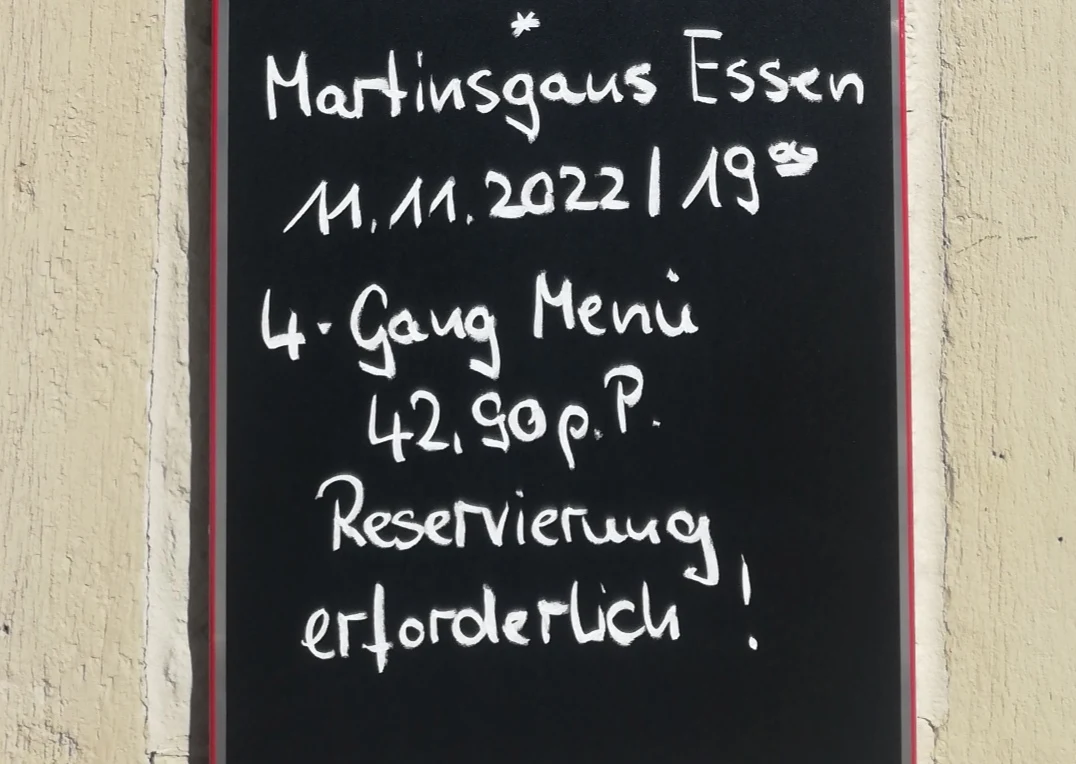 *
Martinsgans Essen
11.11.2022 / 19⁰⁰
4. Gang Menü
42,90 p.P.
Reservierung
erforderlich !